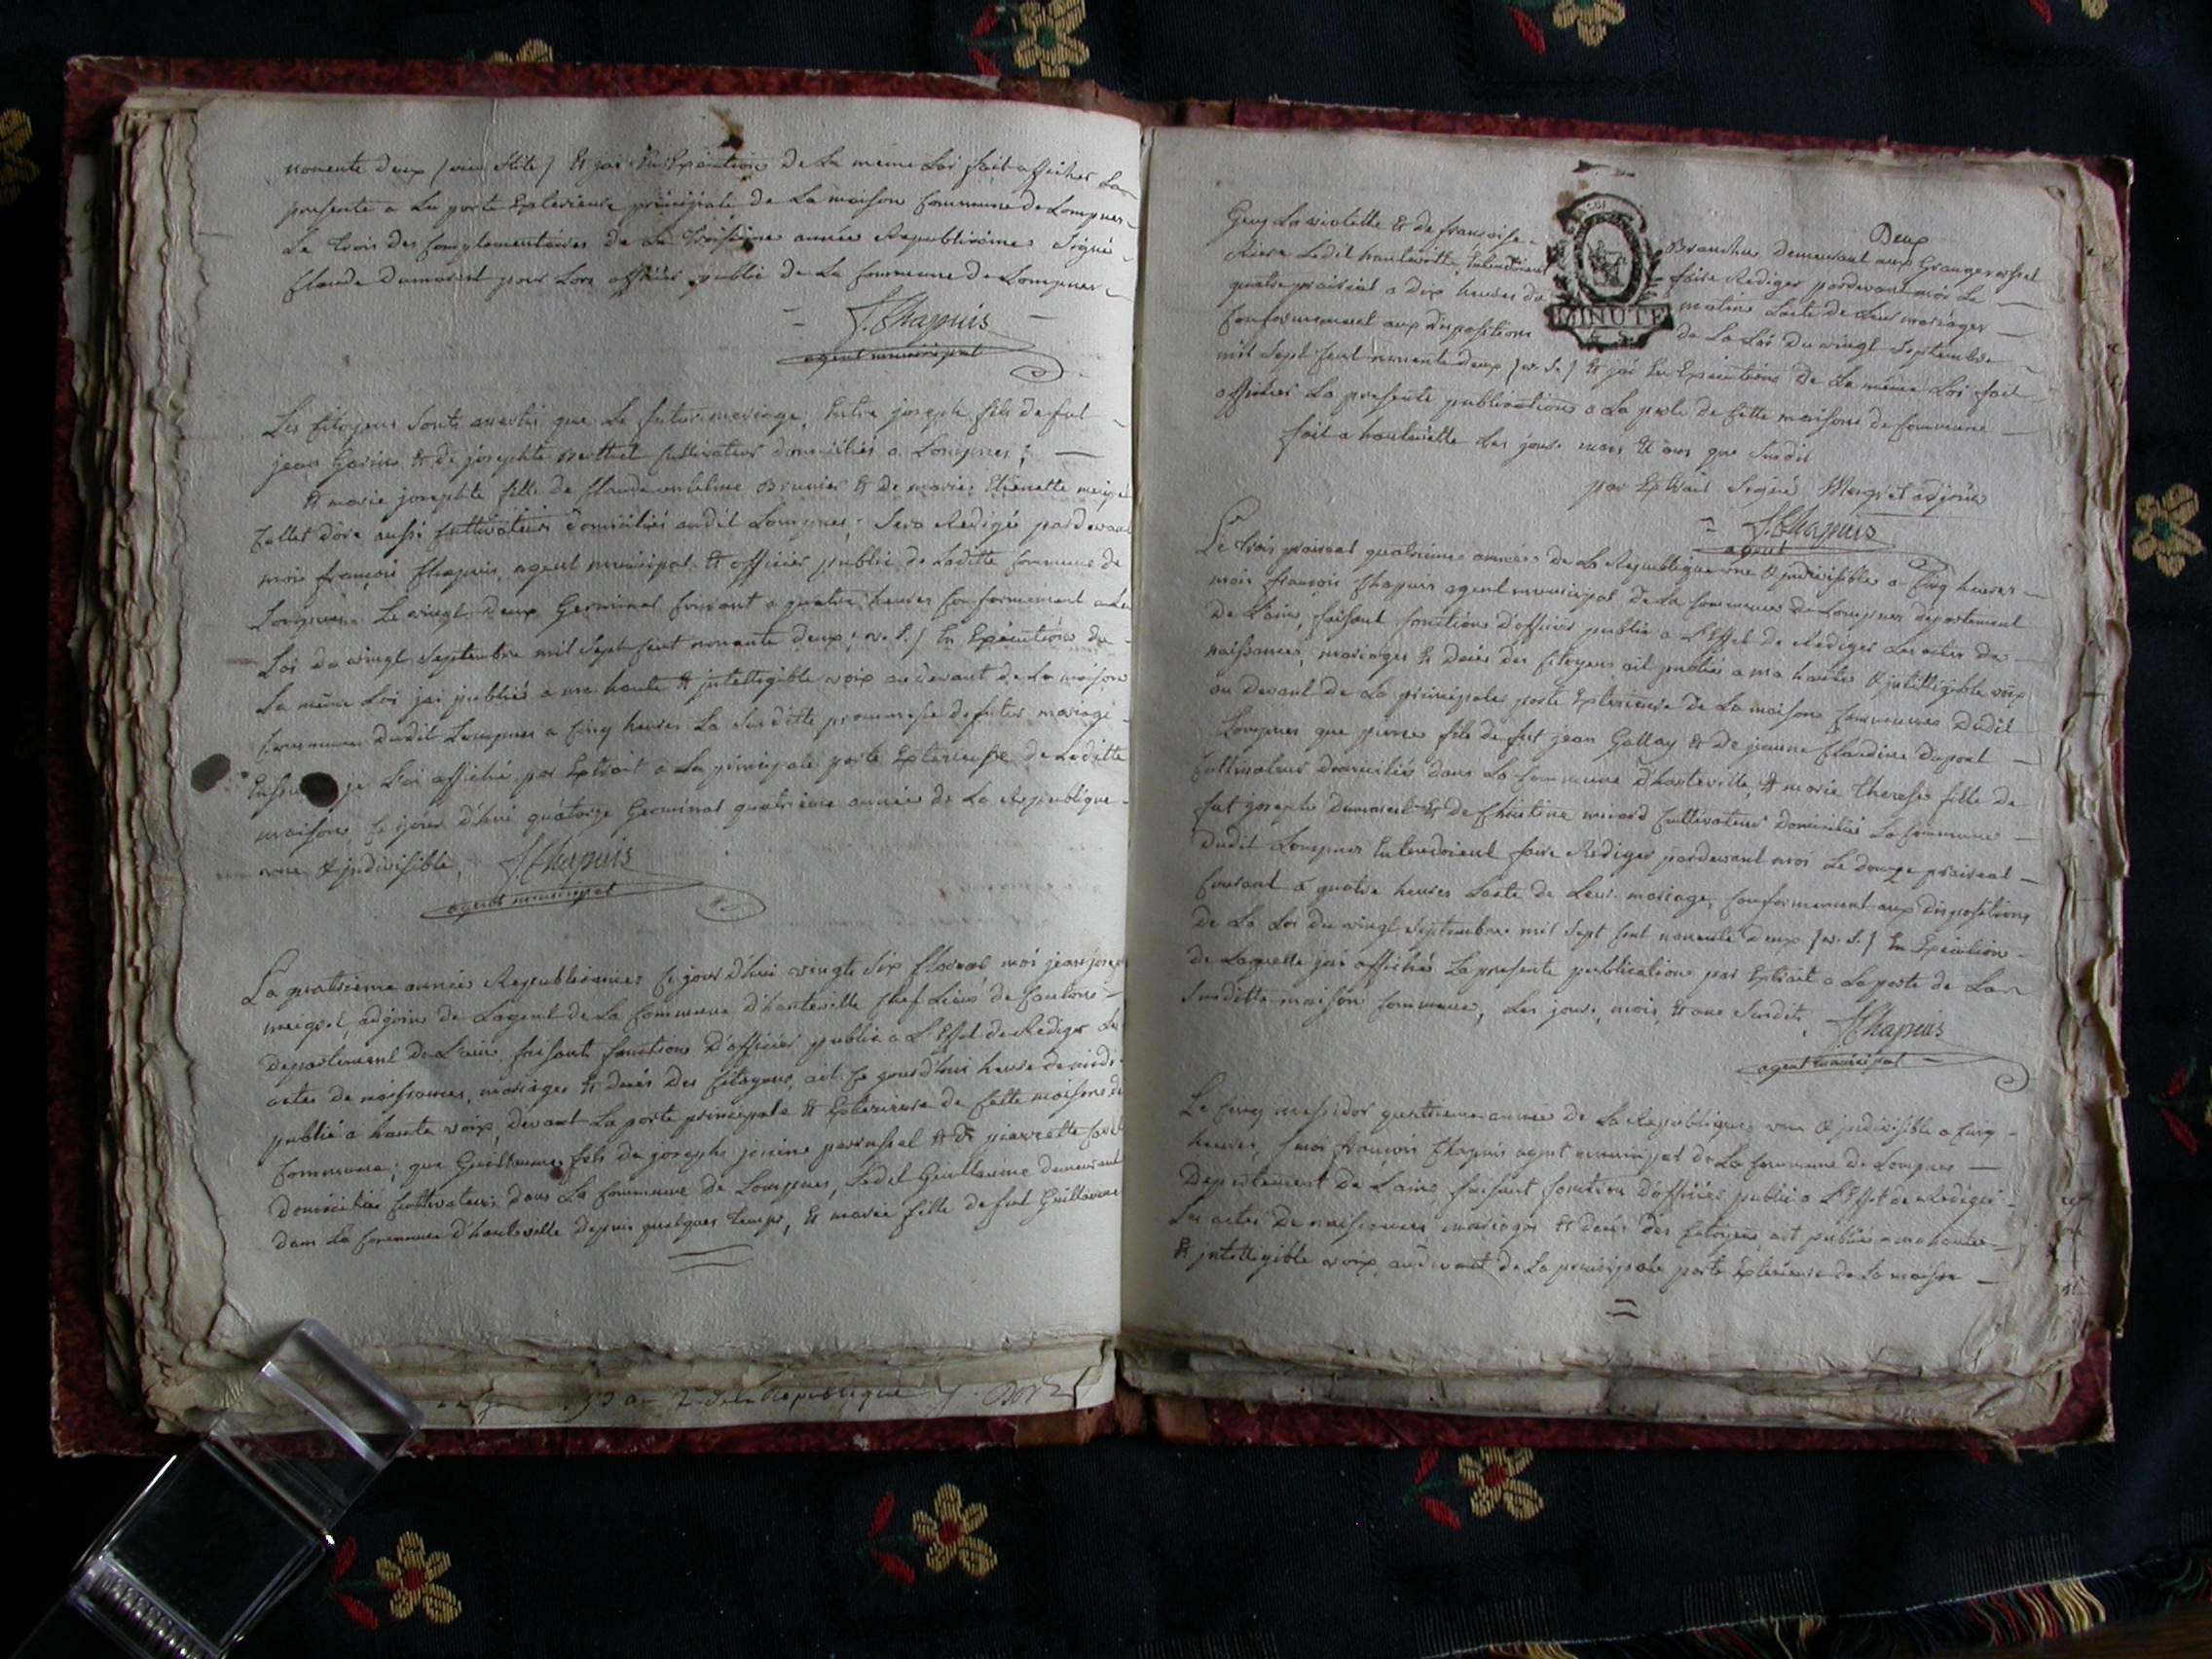 nonente deux (vieu stile) & jai En Execution de la meme Loi fait afficher La
presente a La porte Exterieure principale de La maison Commune de Lompnes
Le trois des Complementaires de La troisieme année Republicaine Signé
Claude Dumarest pour Lors officier public de La Commune de Lompnes
J. Chapuis
agent municipal
Les Citoyens Sonts avertis que Le futur mariage, Entre joseph fils de fut
jean & de josephte Berthet Cultivateur domiciliés a Lompnes ;
& marie josephte fille de Claude anthelme Brunier & de marie Etienette
aussi Cultivateurs domiciliés audit Lompnes ; Sera Redigé pardevant
moi françois Chapuis, agent municipal & officier public de Laditte Commune de
Lompnes Le vingt deux Germinal Courant a quatre heures Conformement a La
Loi du vingt Septembre mil Sept Cent nonante deux, (v. S.) En Execution de
La même Loi jai publiés a ma haute & jntelligible voix au devant de La maison
Commune dudit Lompnes a Cinq heures La Susditte promesse de futur mariage
Ensu je L'ai affiché par Extrait a La principale porte Exterieure de Laditte
maison, Ce jour d'hui quatorze Germinal quatrieme année de La Republique
une & jndivisible, J. Chapuis
agent municipal
La quatrieme année Republicaines Ce jour d'hui vingte Six floreal moi jean joseph
meigret, adjoin de Lagent de La Commune d'hauteville Chef Lieux de Canton
Departement de L'ain, faisant fonctions D'officier public a L'Effet de Rediger Les
actes de naissances, mariages & decès Des Citoyens, ait Ce jour d'hui heure de midi
publié a haute voix, devant La porte principale & Exterieure de Cette maison de
Commune ; que Guillaume fils de joseph & de pierrette
domiciliés Cultivateurs dans La Commune de Lompnes, Ledit Guillaume demeurant
dans La Commune d'hauteville depuis quelques temps, & marie fille de fut Guillaume
an 2 de la Republique
Deux
Guy La violette & de francoise Branche, demeurant aux Granges
Riere Ledit hauteville, Entendoient faire Rediger pardevant moi Le
quatre prairial a dix heures du matin Lacte de Leur mariages
Conformement aux dispositions de La Loi du vingt Septembre
mil Sept Cent nonente deux (v. S.) & jai En Execution de La même Loi fait
afficher La presente publication a La porte de Cette maison de Commune
fait a hauteville Les jours, mois & ans que Susdit
par Extrait Signé Meigret adjoin
J. Chapuis
agent
Le trois prairial quatrieme année de La Republique une & jndivisible a Cinq heures
moi françois Chapuis agent municipal de La Commune de Lompnes departement
de L'ain, faisant fonctions d'officier public a L'Effet de Rediger Les actes de
naissances, mariages & decès des Citoyens, ait publiés a ma haute & jntelligible voix
au devant de La principale porte Exterieure de La maison Commune Dudit
Lompnes que pierre fils de fut jean Gallay & de jeanne Claudine Dupont
Cultivateurs domiciliés dans La Commune D'hauteville, & marie therese fille de
fut joseph Dumarest & de Christine Cultivateurs domiciliés La Commune
Dudit Lompnes Entendoient faire Rediger pardevant moi Le douze prairial
Courant a quatre heures Lacte de Leur mariage, Conformement aux dispositions
de La Loi du vingt Septembre mil Sept Cent nonente deux (v. S.) En Execution
de Laquelle jai affichés La presente publication par Extrait a La porte de La
Susditte maison Commune, Les jours, mois, & ans Susdits, J. Chapuis
agent municipal
Le Cinq messidor quatrieme année de La Republique, une & jndivisible a Cinq
heures, moi françois Chapuis agent municipal de La Commune de Lompnes
Departement de L'ain, faisant fonction d'officier public a L'Effet de Rediger
Les actes De naissances, mariages & decès des Citoyens, ait publiés a ma haute
& jntelligible voix, au devant de La principale porte Exterieure de La maison
MINUTE